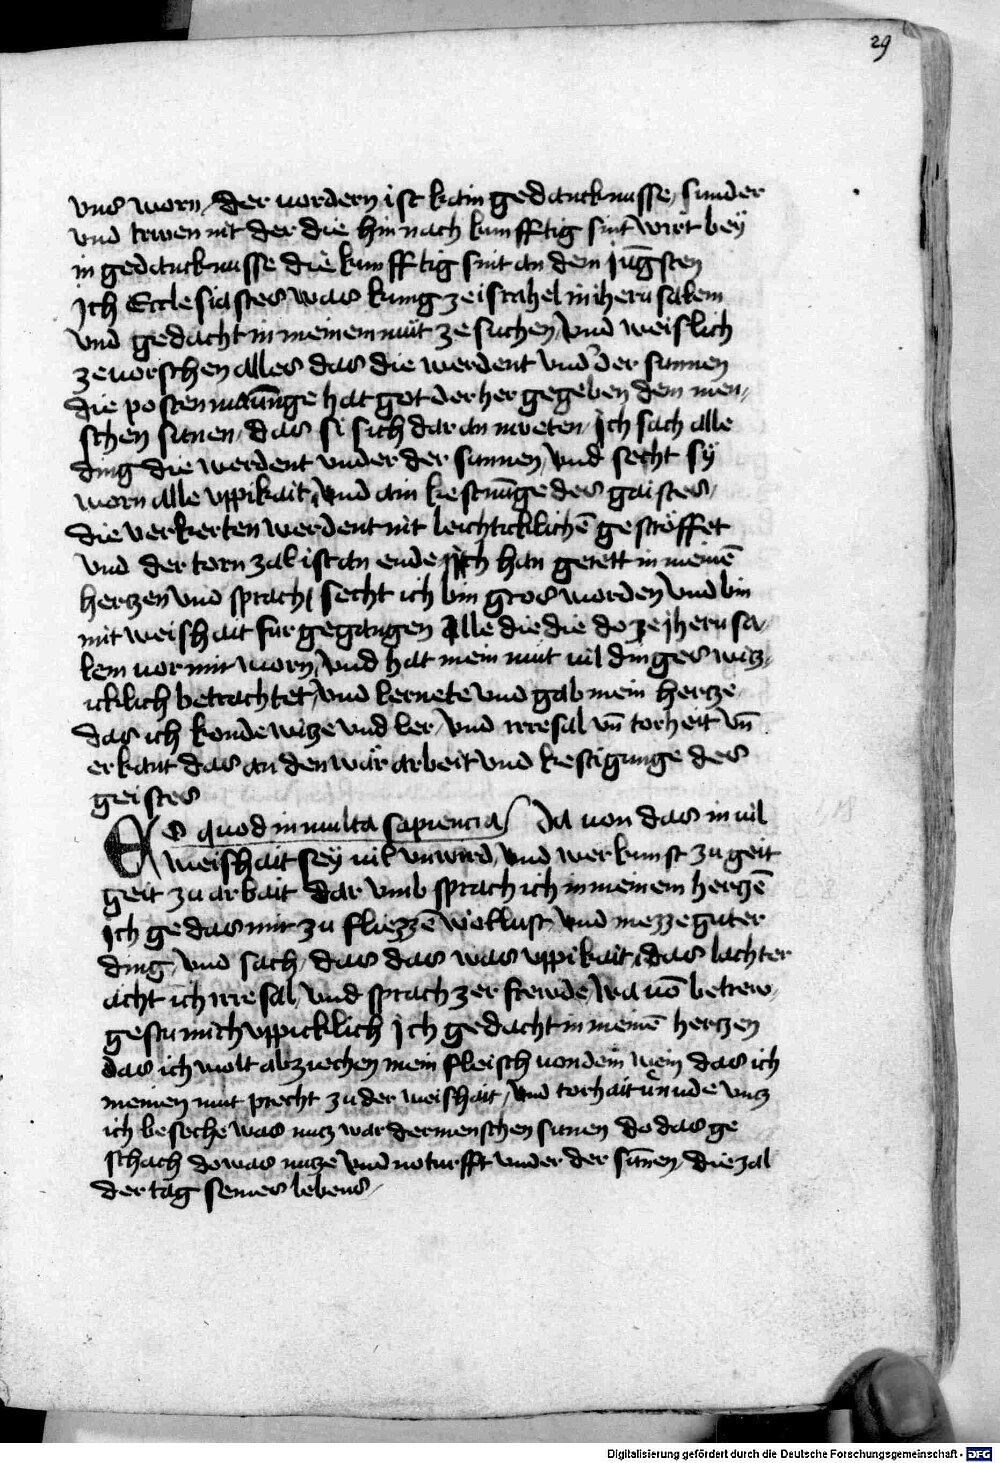 29
vns worn, der vordern ist kain gedancknusse, sunder
vnd trwen nit der die hin nach kunfftig sint wirt bey
in gedancknusse die kunfftig sint an dem jungsten
Ich Ecclesiastes was kunig ze israhel in iherusalem
vnd gedacht in meinem mut ze suchen, vnd weislich
ze vorschen alles das die werdent vnder der sunnen
die posten müunge hat got der her gegeben den men„
schen sunen, das si sich dar an mveten, Ich sach alle
ding die werdent vnder der sunnen, vnd secht sy
worn alle vppikait, vnd ain kestnu̅ge des gaistes,
die verkerten werdent nit leichticklichē gestroffet
vnd der torn zal ist an ende Ich han gerett in meinē
hertzen vnd sprach, secht ich bin gros worden, vnd bin
mit weishait fur gegangen Alle die die do ze jherusa„
lem vor mir worn, vnd hat mein mut vil dinges witz„
icklich betrachtet, vnd lernete vnd gab mein hertze
das ich konde witze vnd ler, vnd irresal vn̄ torheit vn̄
erkant das an den war arbeit vnd kestigunge des
geistes
Eo quod in multa sapiencia Da von das in vil
weishait sey vil vnwird, vnd wer kunst zu geit
geit zu arbait dar vmb sprach ich in meinem herczē
Ich ge das mir zu fliezzē wollust, vnd niezze guter
ding, vnd sach, das das was vppikait, das lachter
acht ich irresal, vnd sprach zer frewde, wa vō betrew„
gestu mich vppicklich Ich gedacht in meinē hertzen
das ich wolt abziechen mein fleisch von dem wein das ich
meinen mut precht zu der weishait, vnd torhait vermide vntz
ich beseche was nucz war der menschen sunen do das ge
schach do was nucze vnd noturfft vnder der sūnen, die zal
der tag seines lebens,
Digitalisierung gefördert durch die Deutsche Forschungsgemeinschaft - DFG